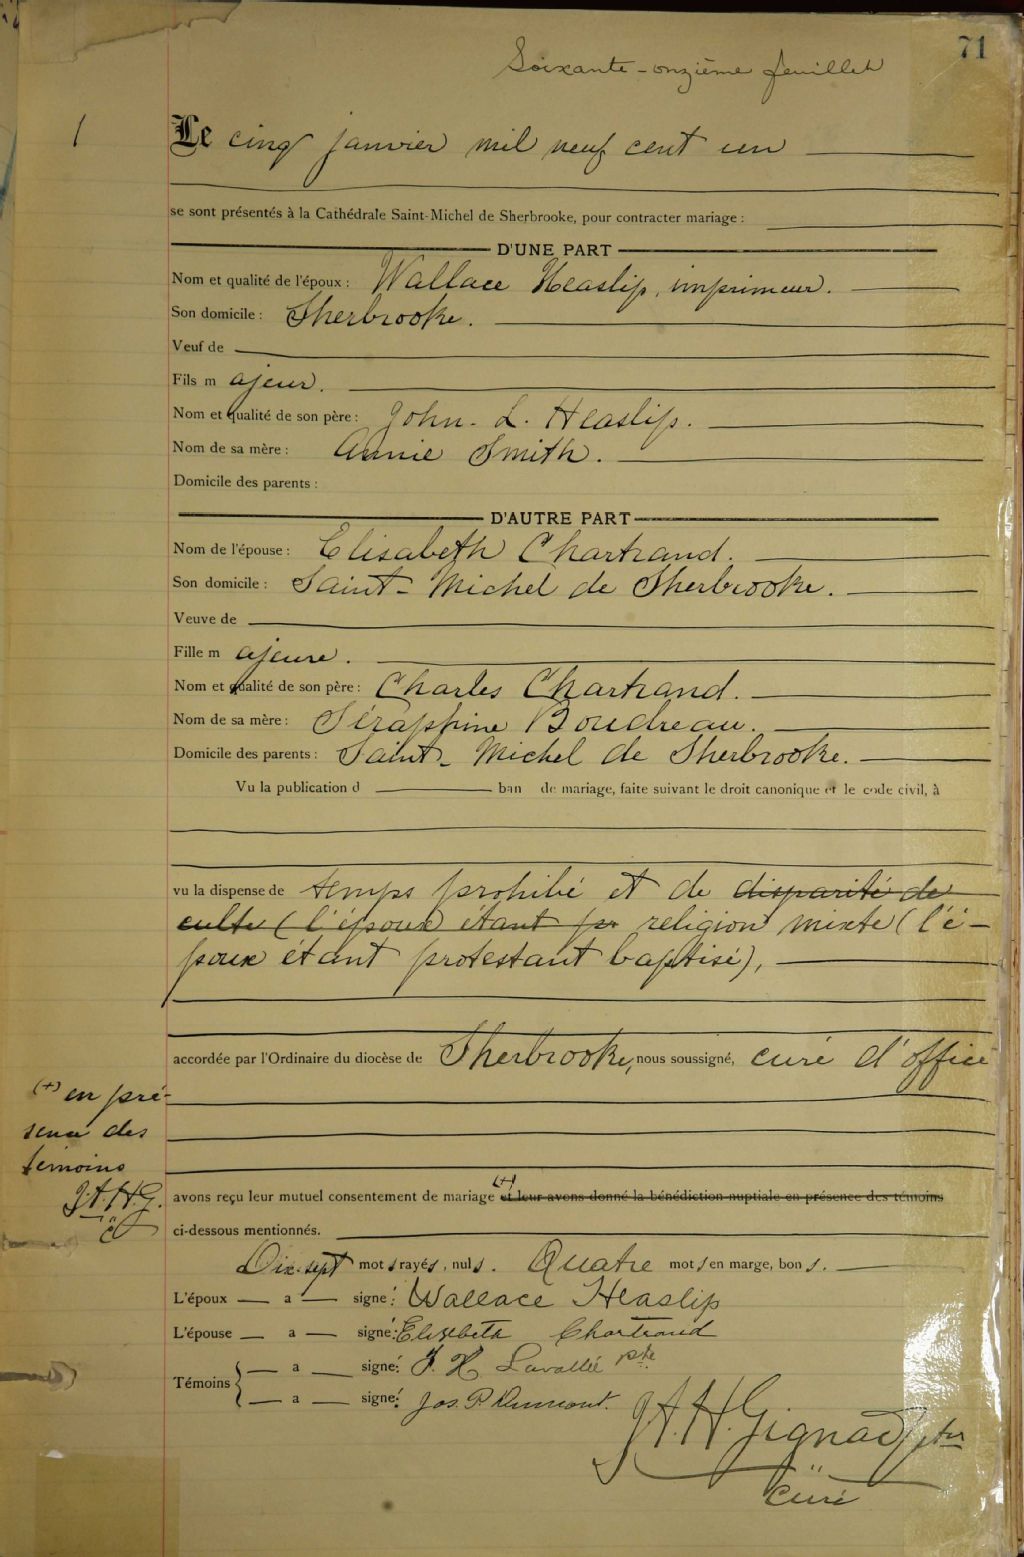 71
Soixante-onzième feuillet
1
Le cinq janvier mil neuf cent un
se sont présentés à la Cathédrale Saint-Michel de Sherbrooke, pour contracter mariage :
D'UNE PART
Nom et qualité de l'époux : Wallace Heaslip, imprimeur.
Son domicile : Sherbrooke.
Veuf de
Fils majeur.
Nom et qualité de son père : John. L. Heaslip.
Nom de sa mère : Annie Smith.
Domicile des parents :
D'AUTRE PART
Nom de l'épouse : Elisabeth Chartrand.
Son domicile : Saint-Michel de Sherbrooke.
Veuve de
Fille majeure.
Nom et qualité de son père : Charles Chartrand.
Nom de sa mère : Séraphine Boudreau.
Domicile des parents : Saint-Michel de Sherbrooke.
Vu la publication d ban de mariage, faite suivant le droit canonique et le code civil, à
vu la dispense de temps prohibé et de disparité de
culte (l'époux étant pr religion mixte (l'é-
poux étant protestant baptisé),
accordée par l'Ordinaire du diocèse de Sherbrooke, nous soussigné, curé d'office
(+) en pré-
sence des
témoins
J.A.H.G.
c
avons reçu leur mutuel consentement de mariage (+) et leur avons donné la bénédiction nuptiale en présence des témoins
ci-dessous mentionnés.
Dix-sept mots rayés, nuls. Quatre mots en marge, bons.
L'époux — a — signé: Wallace Heaslip
L'épouse — a — signé: Elisebeth Chartrand
Témoins { — a — signé: J. H. Lavallée ptre
— a — signé: Jos. P. Dumont.
J.A.H. Gignac ptre
curé